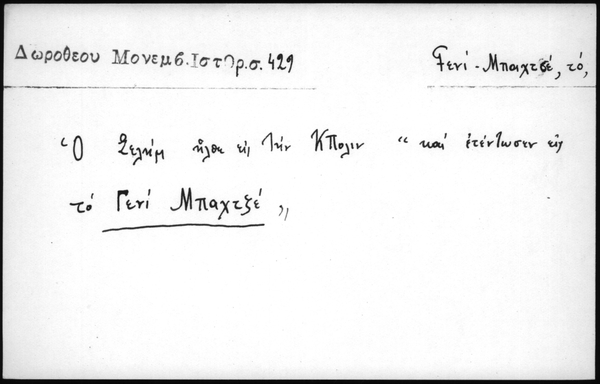 Δωροθεου Μονεμβ. Ιστορ. σ. 429
Γενί - Μπαχτσέ, τό,
"Ὁ Σελήμ ἦλθε εἰς τήν ΚΠολιν " καί ἐτέντωσεν εἰς
τό Γενί Μπαχτζέ "